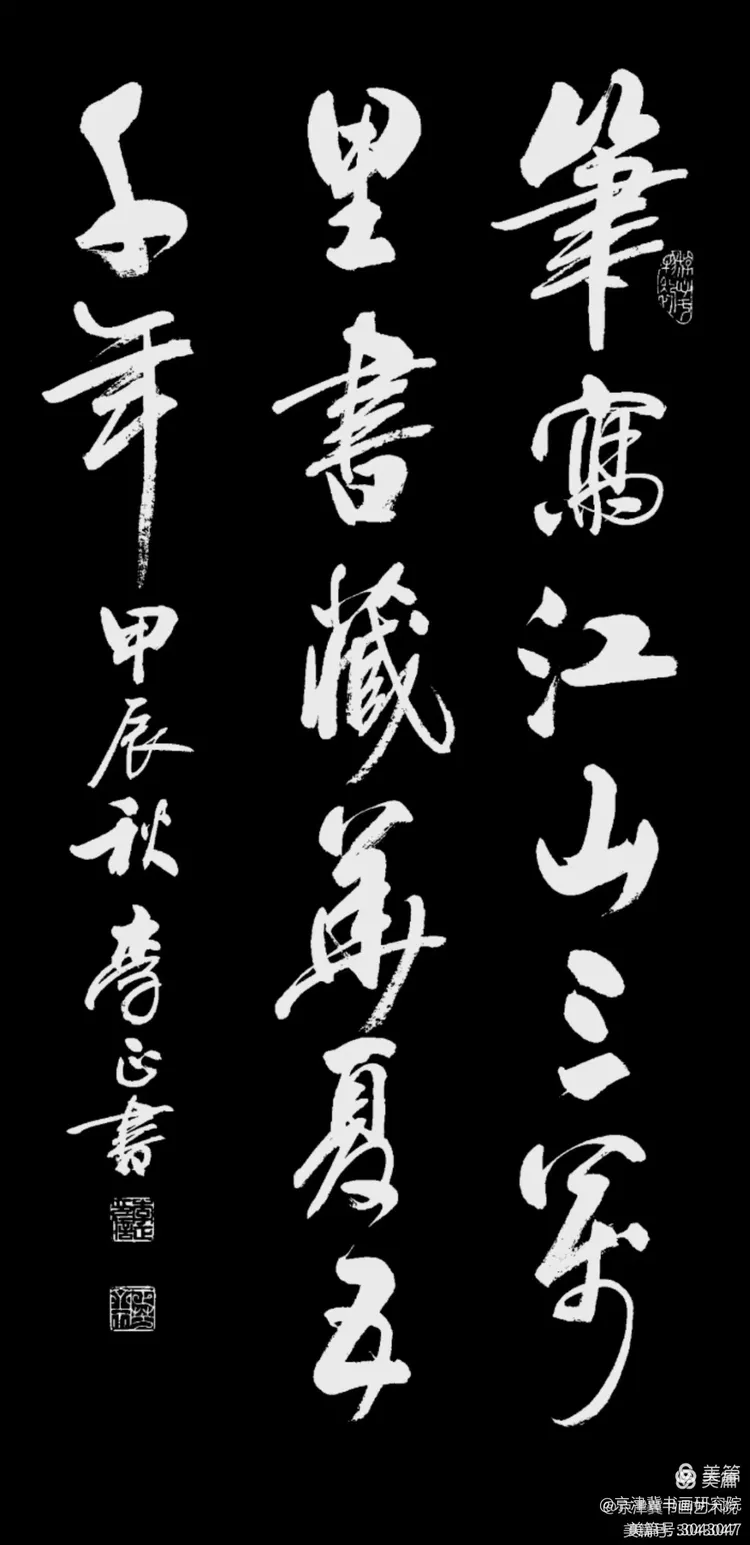 筆寫江山三萬
里書藏華夏五
千年甲辰秋李正書
美篇
@京津冀书画艺术院
美篇号:3043047